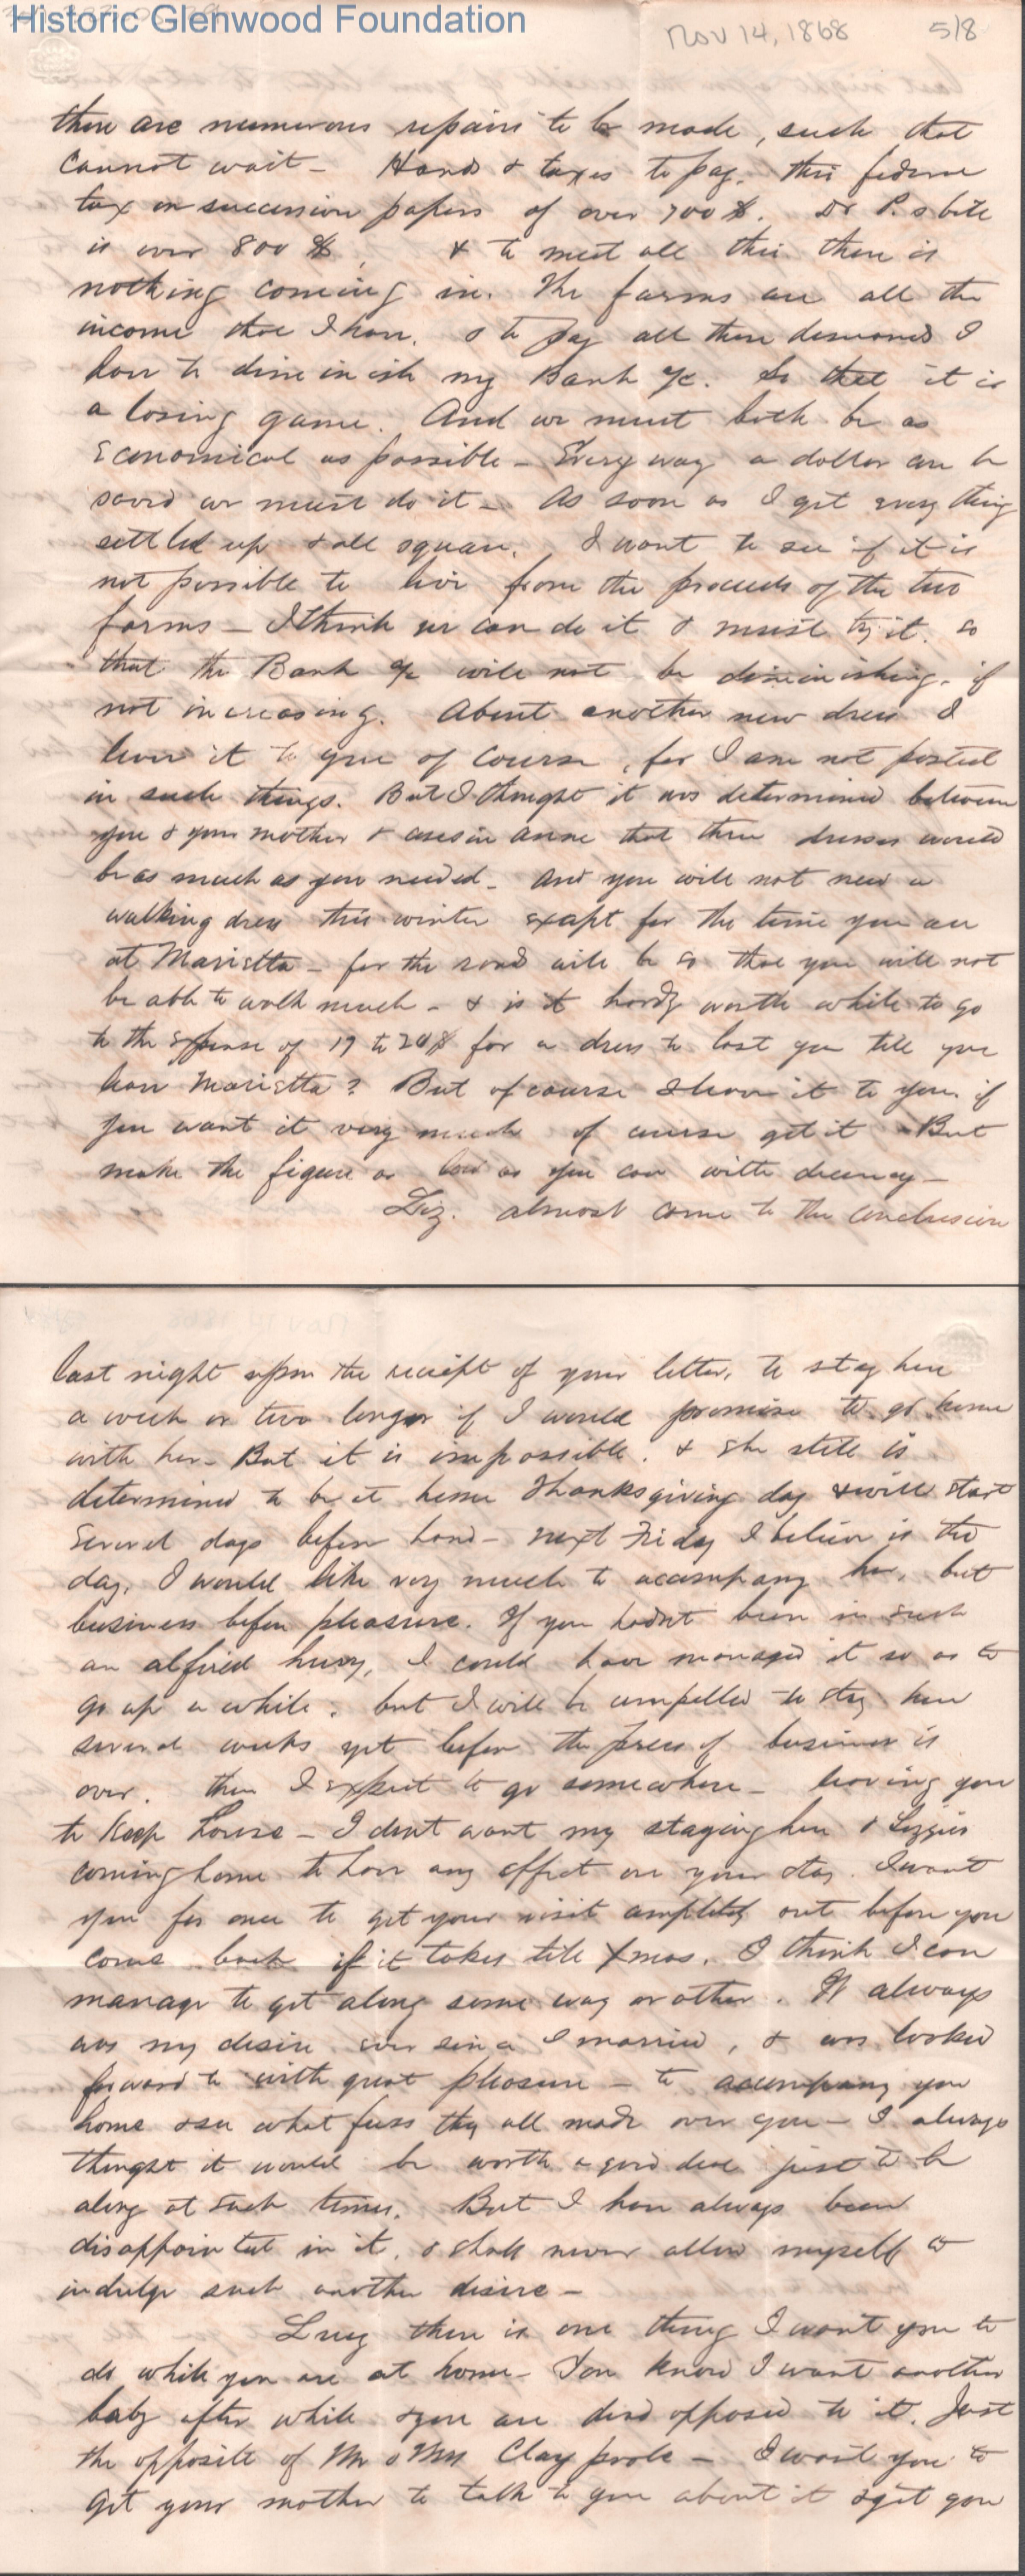 Historic Glenwood Foundation
Nov 14, 1868 5/8
there are numerous repairs to be made, such that
cannot wait - Hands & taxes to pay. this federal
tax on succession papers of over 700$. Dr P.s bill
is over 800$, & to meet all this there is
nothing coming in. The farms are all the
income that I have. & to pay all these demands I
have to diminish my Bank %c. So that it is
a losing game. And we must both be as
Economical as possible - Every way a dollar can be
saved we must do it - As soon as I get every thing
settled up & all square, I want to see if it is
not possible to live from the proceeds of the two
farms - I think we can do it & must try it. so
that the Bank %c will not be diminishing, if
not increasing. About another new dress I
leave it to you of course, for I am not posted
in such things. But I thought it was determined between
you & your mother & cousin Anne that three dresses would
be as much as you needed - And you will not need a
walking dress this winter except for the time you are
at Marietta - for the road will be so that you will not
be able to walk much - & is it hardly worth while to go
to the expense of 19 to 20$ for a dress to last you till you
leave Marietta? But of course I leave it to you. if
you want it very much of course get it - But
make the figure as low as you can with decency -
Liz. almost came to the conclusion
last night upon the receipt of your letter, to stay here
a week or two longer if I would promise to go home
with her - But it is impossible. & she still is
determined to be at home Thanksgiving day & will start
several days before hand - next Friday I believe is the
day. I would like very much to accompany her, but
business before pleasure. If you hadn't been in such
an alfired hurry, I could have managed it so as to
go up a while. but I will be compelled to stay here
several weeks yet before the press of business is
over. then I expect to go somewhere - leaving you
to Keep House - I don't want my staying here & Lizzies
coming home to have any effect on your stay. I want
you for once to get your visit completely out before you
come back if it takes till Xmas. I think I can
manage to get along some way or other. It always
was my desire ever since I married, & was looked
forward to with great pleasure - to accompany you
home & see what fuss they all made over you - I always
thought it would be worth a good deal just to be
along at such times. But I have always been
disappointed in it. & shall never allow myself to
indulge such another desire -
Lucy there is one thing I want you to
do while you are at home - You know I want another
baby after while & you are dead opposed to it. Just
the opposite of Mr & Mrs Claypoole - I want you to
get your mother to talk to you about it & get you